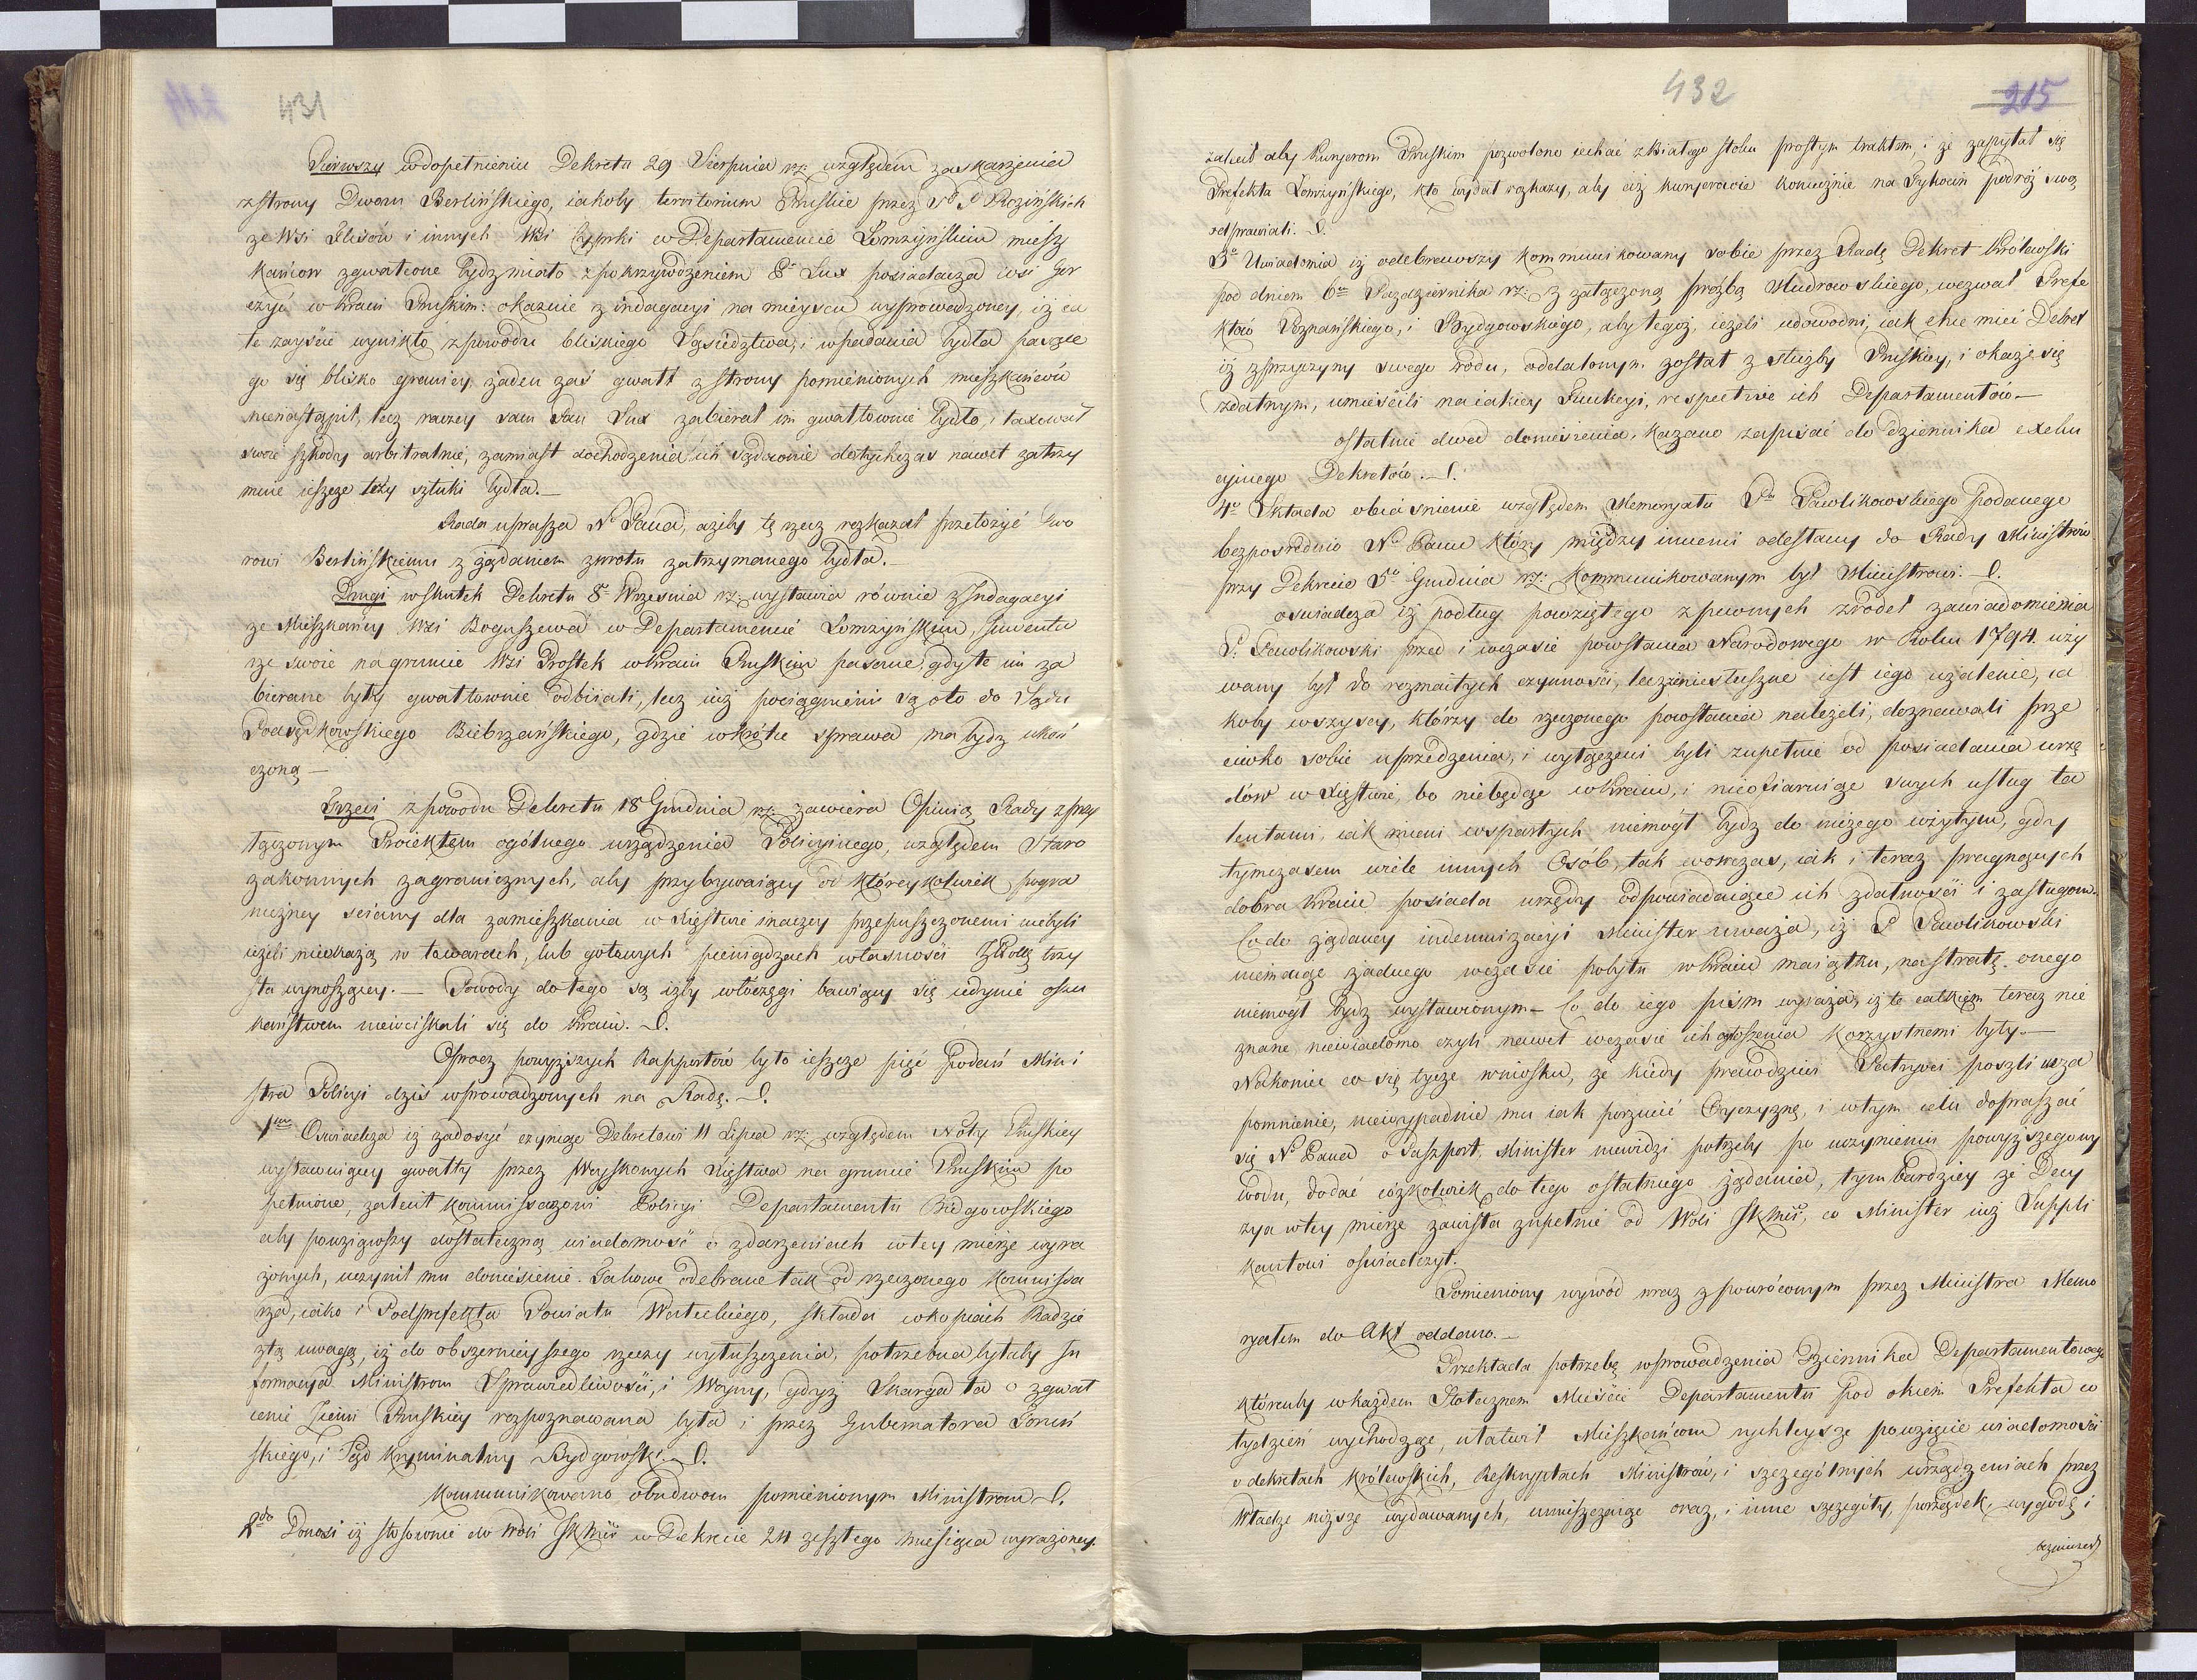 431
Pierwszy w dopełnieniu Dekretu 29 Sierpnia rz: względem zaskarżenia
z strony Dworu Berlińskiego, iakoby territorium Pruskie przez
ze Wsi i innych Wsi Cyprki w Departamencie Łomżyńskim miesz
kańcow zgwałcone bydź miało z pokrzywdzeniem Pa Lux posiadacza wsi Gor
czyć w Kraiu Pruskim: okazuie z indagacyi na mieyscu wyprowadzoney, iż ca
łe zayście wynikło z powodu bliskiego Sąsiedztwa, i wpadania bydła pasące
go się blisko granicy, żaden zaś gwałt z strony pomienionych mieszkańców
nienastąpił, lecz raczey sam Pan Lux zabierał im gwałtownie bydło, i taxował
swoie szkody arbitralnie, zamiast dochodzenia ich sądownie dotychczas nawet zatrzy
muie ieszcze trzy sztuki bydła.—
Rada uprasza N. Pana, ażeby tę rzecz rozkazał przełożyć Dwo
rowi Berlińskiemu z żądaniem zwrotu zatrzymanego bydła.—
Drugi wskutek Dekretu 8o Września rz: wystawia równie z Indagacyi
że Mieszkańcy Wsi Boguszewa w Departamencie Łomżyńskim, Inwenta
rze swoie na gruncie Wsi Prostek w Kraiu Pruskim pasane, gdy te im za
bierane były gwałtownie odbiiali, lecz iuż pociągnieni są oto do Sądu
Podsędkowskiego Biebrzańskiego, gdzie wkrótce sprawa ma bydź ukoń
czoną —
Trzeci z powodu Dekretu 18 Grudnia rz: zawiera Opinią Rady z przy
łączonym Proiektem ogólnego urządzenia Policyinego, względem Staro
zakonnych zagranicznych, aby przybywaiący od któreykolwiek pogra
niczney ściany dla zamieszkania w Xięstwie inaczey przepuszczonemi niebyli
ieżeli nieokażą w towarach, lub gotowych pieniądzach własności trzy
sta wynoszącey.— Powody do tego są iżby włóczęgi bawiący się iedynie oszu
kaństwem niewciskali się do Kraiu. D.
Oprocz powyższych Rapportów było ieszcze pięć Podań Mini
stra Policyi dziś wprowadzonych na Radę. D.
1mo Oświadcza iż zadosyć czyniąc Dekretowi 11 Lipca rz: względem Noty Pruskiey
wystawuiącey gwałty przez Woyskowych Xięstwa na gruncie Pruskim po
pełnione, zalecił Kommissarzowi Policyi Departamentu Bidgowskiego
aby powziąwszy dostateczną wiadomość o zdarzeniach w tey mierze wyra
żonych, uczynił mu doniesienie. Takowe odebrane tak od rzeczonego Kommissa
rza, iako i Podprefekta Powiatu Wałeckiego, składa w kopiach Radzie
z tą uwagą, iż do obszernieyszego rzeczy wyłuszczenia, potrzebna byłaby In
formacya Ministrom Sprawiedliwości, i Woyny, gdyż Skarga ta o zgwał
cenie Ziemi Pruskiey rozpoznawana była i przez Gubernatora Toruń
skiego, i Sąd Kryminalny Bydgowski. D.
Kommunikowano obudwom pomienionym Ministrom D.
2do Donosi iż stosownie do Woli JKMci w Dekrecie 24 zeszłego miesiąca wyrażoney.
432
215
zalecił aby Kuryerom Pruskim pozwolono iechać z Białego stoku prostym traktem, i że zapytał się
Prefekta Łomżyńskiego, kto wydał rozkazy, aby ciż kuryerowie koniecznie na Tykocin podróż swą
odprawiali. D.
3o Uwiadomia iż odebrawszy kommunikowany sobie przez Radę Dekret Królewski
pod dniem 6m Pazdziernika rz: z załączoną proźbą Mudrowskiego, wezwał Prefe
któw Poznańskiego, i Bydgowskiego, aby tegoż, ieżeli udowodni, iak chce mieć Dekret
iż z przyczyny swego rodu, oddalonym został z służby Pruskiey, i okaże się
zdatnym, umieścili na iakiey Funkcyi, respective ich Departamentów—
ostatnie dwa doniesienia, kazano zapisać do dziennika exeku
cyinego Dekretów. D.
4o Składa obiaśnienie względem Memoryału Pa Pawlikowskiego Podanego
bezpośrednio N. Panu który między innemi odesłany do Rady Ministrów
przy Dekrecie 5o Grudnia rz: Kommunikowanym był Ministrowi. D.
oświadcza iż podług powziętego z pewnych zrodeł zawiadomienia
P. Pawlikowski przed i wczasie powstania Narodowego w Roku 1794. uży
wany był do rozmaitych czynności, lecz niesłuszne iest iego użalenie, ia
koby wszyscy, którzy do rzeczonego powstania należeli, doznawali prze
ciwko sobie uprzedzenia, i wyłączeni byli zupełnie od posiadania urzę
dów w Xięstwie, bo niebędąc w Kraiu, i nieofiaruiąc swych usług ta
lentami, iak mieni wspartych niemógł bydź do niczego użytym, gdy
tymczasem wiele innych Osób, tak wowczas, iak i teraz pragnących
dobra Kraiu posiada urzędy odpowiadaiące ich zdatności i zasługom.
Co do żądaney indemnizacyi Minister uważa, iż P. Pawlikowski
niemaiąc żadnego wczasie pobytu w Kraiu maiątku, na stratę onego
niemógł bydź wystawionym— Co do iego pism wyraża, iż te całkiem teraz nie
znane, niewiadomo czyli nawet wczasie ich ogłoszenia korzystnemi były.—
Nakoniec co się tycze wniosku, że kiedy prawdziwi Patryoci poszli w za
pomnienie, niewypadnie mu iak porzucić Oyczyznę, i w tym celu dopraszać
się N. Pana o Paszport, Minister niewidzi potrzeby po uczynieniu powyższego wy
wodu, dodać cóżkolwiek do tego ostatniego żądania, tym bardziey że Decy
zya w tey mierze zawisła zupełnie od Woli JKMci, co Minister iuż Suppli
kantowi oświadczył.
Pomieniony wywód wraz z powróconym przez Ministra Memo
ryałem do Akt oddano.—
Przekłada potrzebę wprowadzenia Dziennika Departamentowego
któreuby w każdem Stołecznem Mieście Departamentu pod okiem Prefekta co
tydzień wychodząc, ułatwił Mieszkańcom rychleysze powzięcie wiadomości
o dekretach Królewskich, Reskryptach Ministrów, i szczególnych urządzeniach przez
Władze niższe wydawanych, umieszczaiąc oraz, i inne szczegóły, porządek, wygodę i